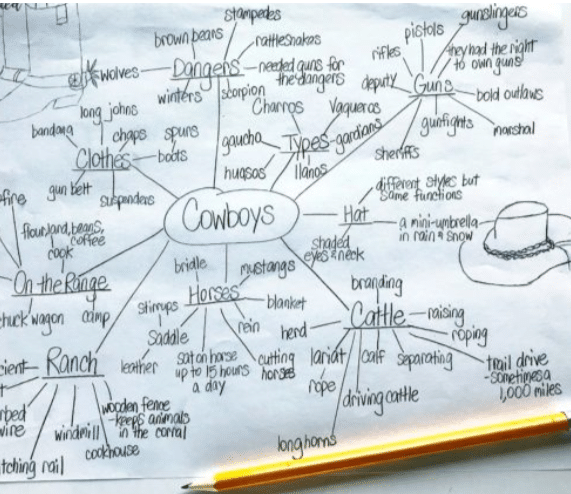 stampedes
brown bears
rattlesnakes
wolves
Dangers
needed guns for
the dangers
winters
scorpion
gunslingers
pistols
rifles
they had the right
to own guns!
deputy
Guns
bold outlaws
gunfights
marshal
sheriffs
Charros
Vaqueros
gaucho
Types
gardians
huasos
llanos
long johns
bandana
chaps
spurs
Clothes
boots
gun belt
suspenders
Cowboys
different styles but
same functions
Hat
a mini-umbrella
in rain & snow
shaded
eyes & neck
fire
flour, lard, beans,
coffee
cook
On the Range
chuck wagon
camp
bridle
mustangs
Horses
blanket
stirrups
rein
Saddle
leather
sat on horse
up to 15 hours
a day
cutting
horses
branding
Cattle
raising
roping
herd
lariat
calf
separating
trail drive
-sometimes a
1,000 miles
rope
driving cattle
longhorns
cient
Ranch
rbed
wire
windmill
wooden fence
-keeps animals
in the corral
cookhouse
tching rail